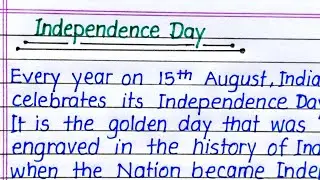 Independence Day
Every year on 15th August, India
celebrates its Independence Da
It is the golden day that was
engraved in the history of Ind
when the Nation became Inde